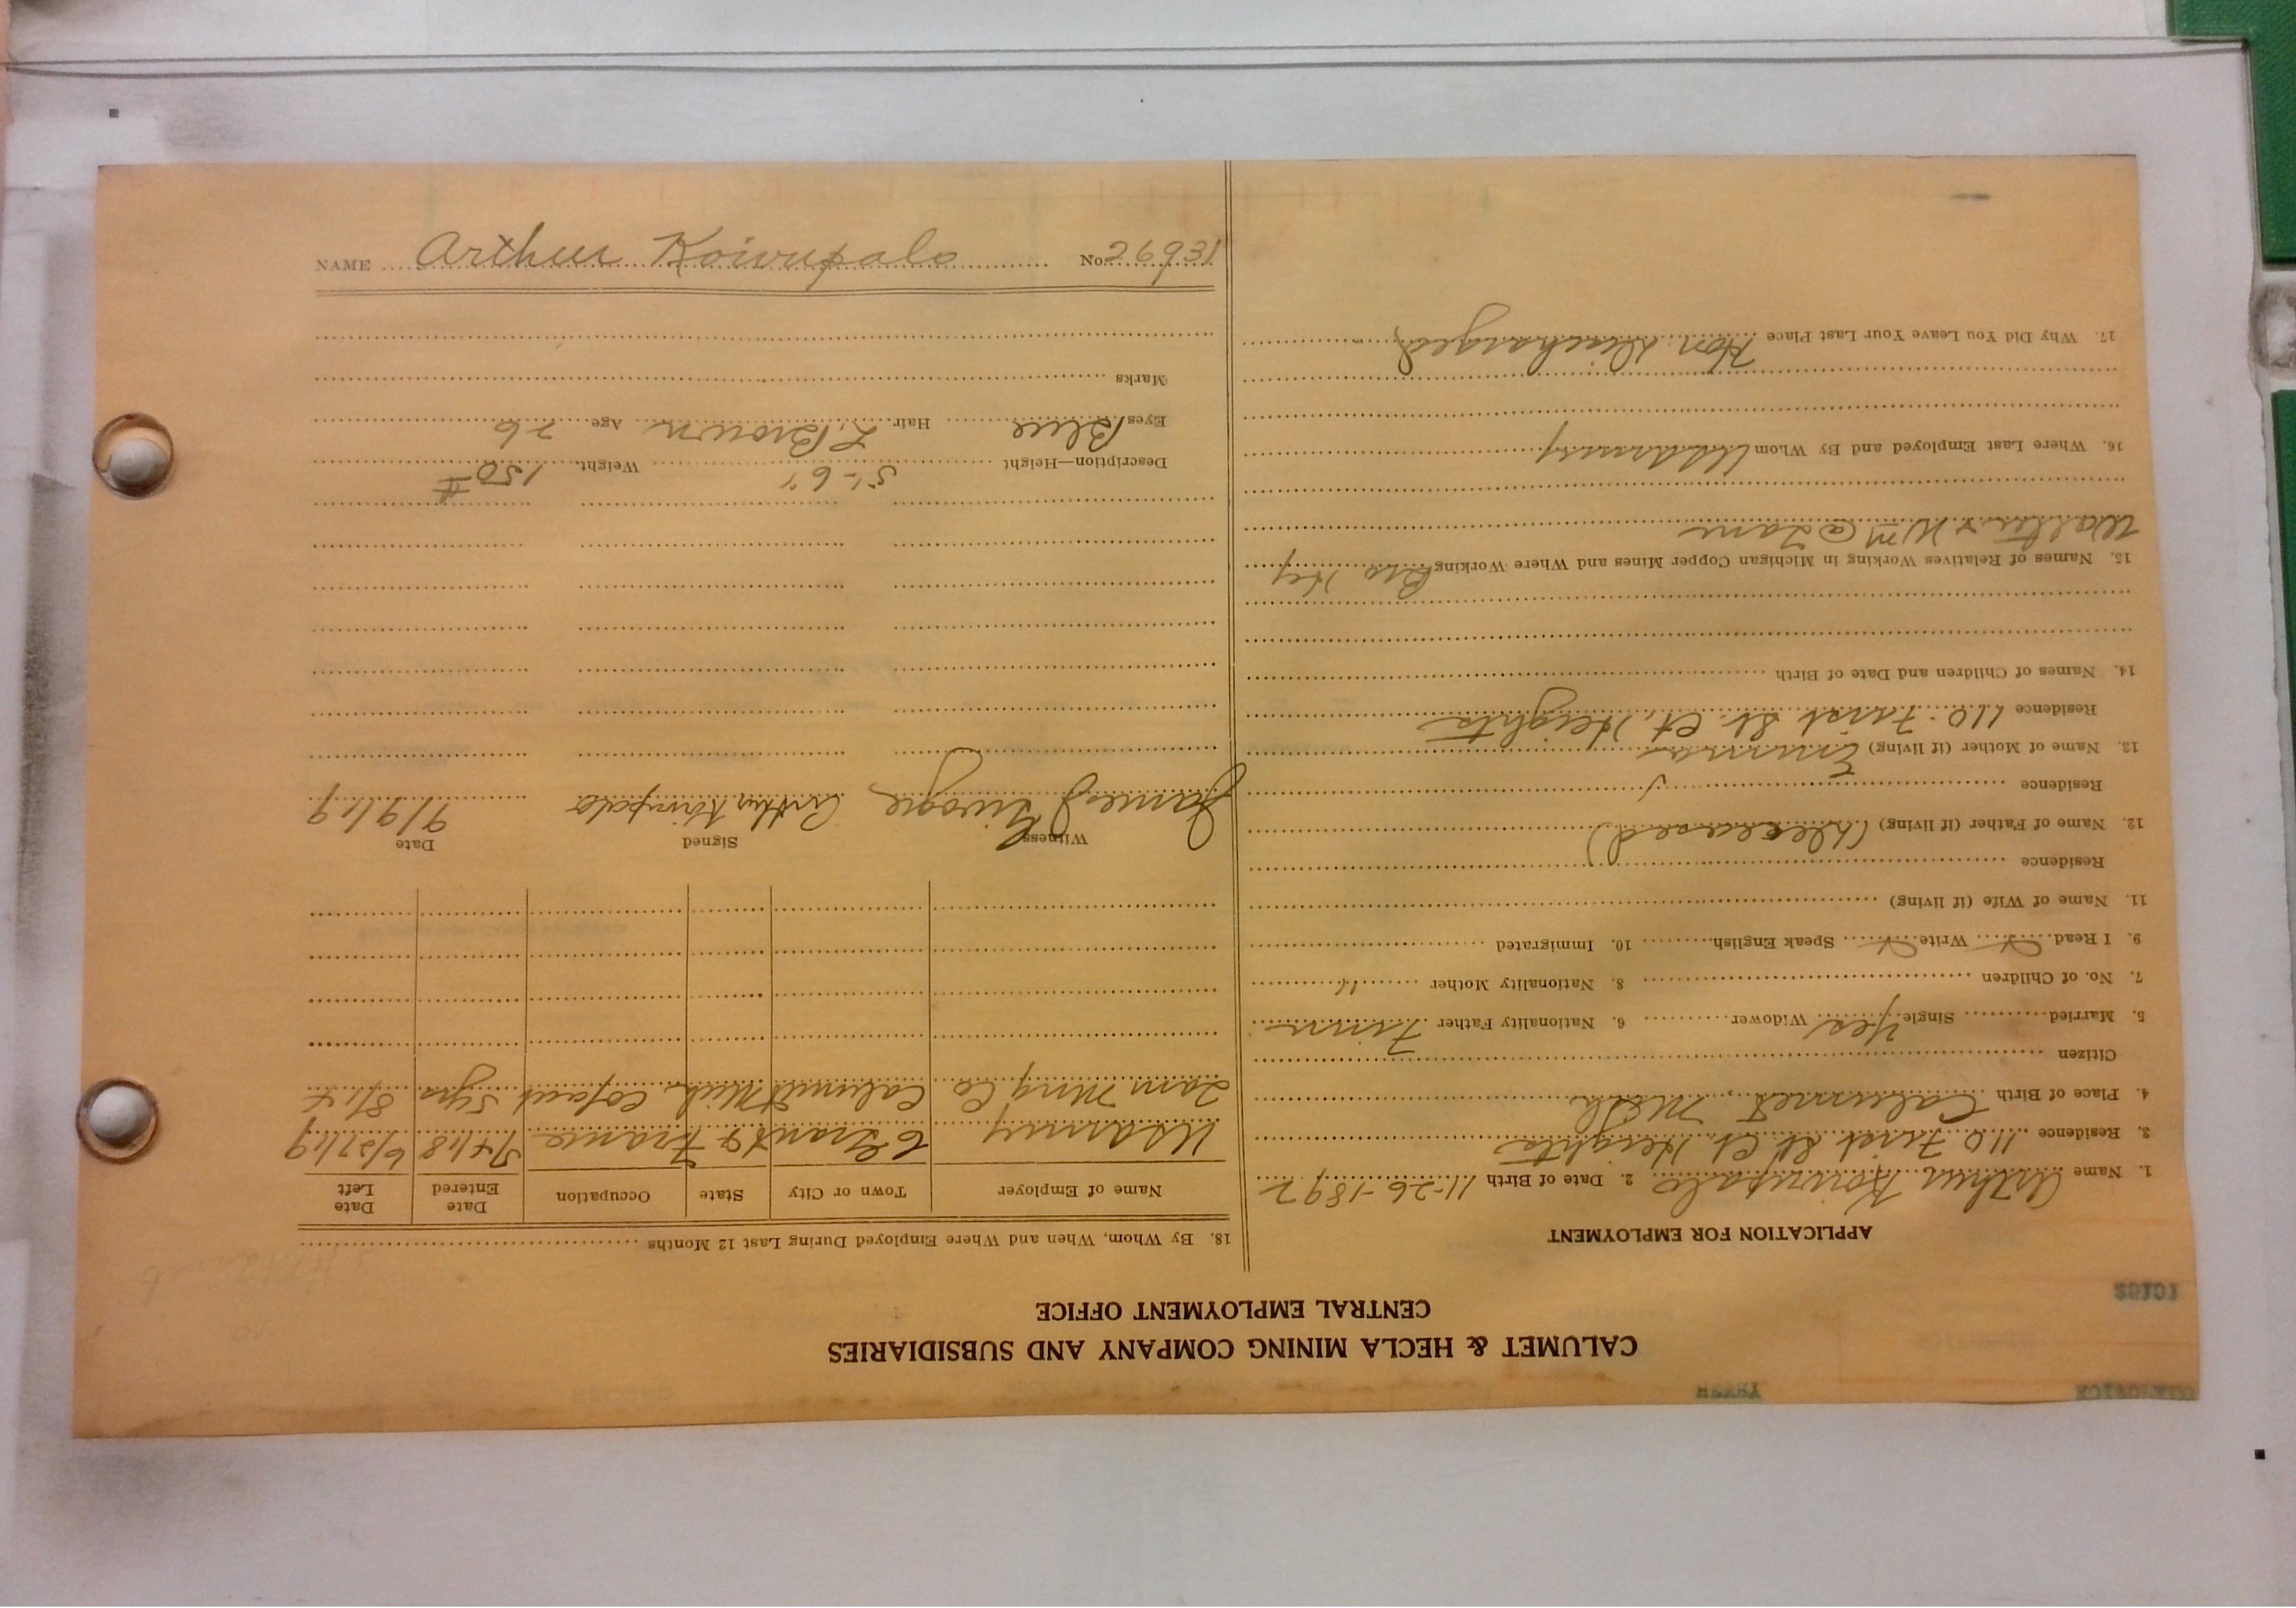 CALUMET & HECLA MINING COMPANY AND SUBSIDIARIES
CENTRAL EMPLOYMENT OFFICE
10162
APPLICATION FOR EMPLOYMENT
1. Name Arthur Koivupalo 2. Date of Birth 11-26-1892
3. Residence 110 First St Ct Heights
4. Place of Birth Calumet, Mich
Citizen
5. Married Single Yes Widower 6. Nationality Father Finn
7. No. of Children 8. Nationality Mother "
9. I Read Write Speak English 10. Immigrated
11. Name of Wife (if living)
Residence
12. Name of Father (if living) (Deceased)
Residence
13. Name of Mother (if living) Emma
Residence 110 First St. Ct. Heights
14. Names of Children and Date of Birth
15. Names of Relatives Working in Michigan Copper Mines and Where Working Bro Hy
Walter & Wm @ Tam
16. Where Last Employed and By Whom US Army
17. Why Did You Leave Your Last Place Hon. Discharged
18. By Whom, When and Where Employed During Last 12 Months
Name of Employer Town or City State Occupation Date Entered Date Left
US Army France 6/27/19
Tam Ming Co Calumet Mich 5 yrs
Witness Signed Date
James Arthur Koivupalo 9/9/19
Description—Height 5'-6" Weight 150 #
Eyes Blue Hair L. Brown Age 26
Marks
NAME Arthur Koivupalo No. 26931